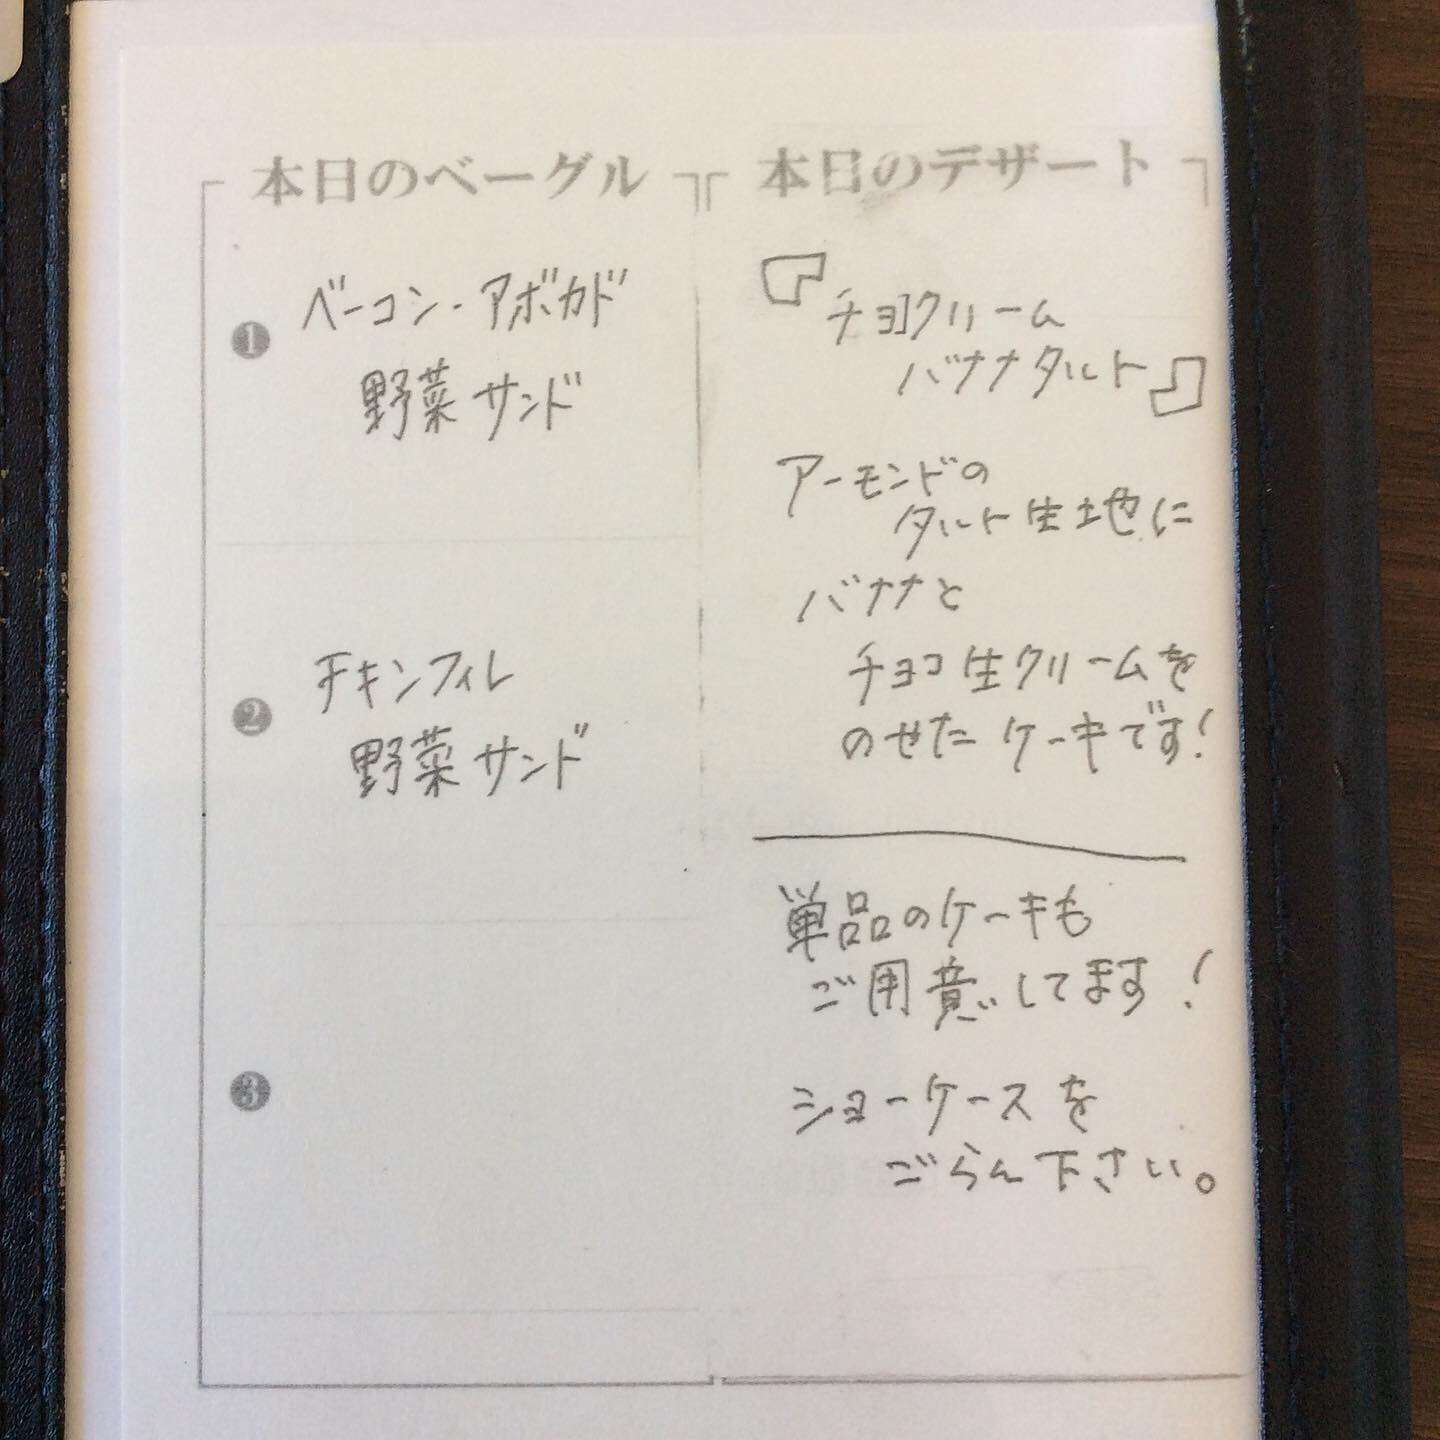 本日のベーグル
❶
ベーコン・アボカド
野菜サンド
❷
チキンフィレ
野菜サンド
❸
本日のデザート
『チョコクリーム
バナナタルト』
アーモンドの
タルト生地に
バナナと
チョコ生クリームを
のせたケーキです!
単品のケーキも
ご用意してます!
ショーケースを
ごらん下さい。